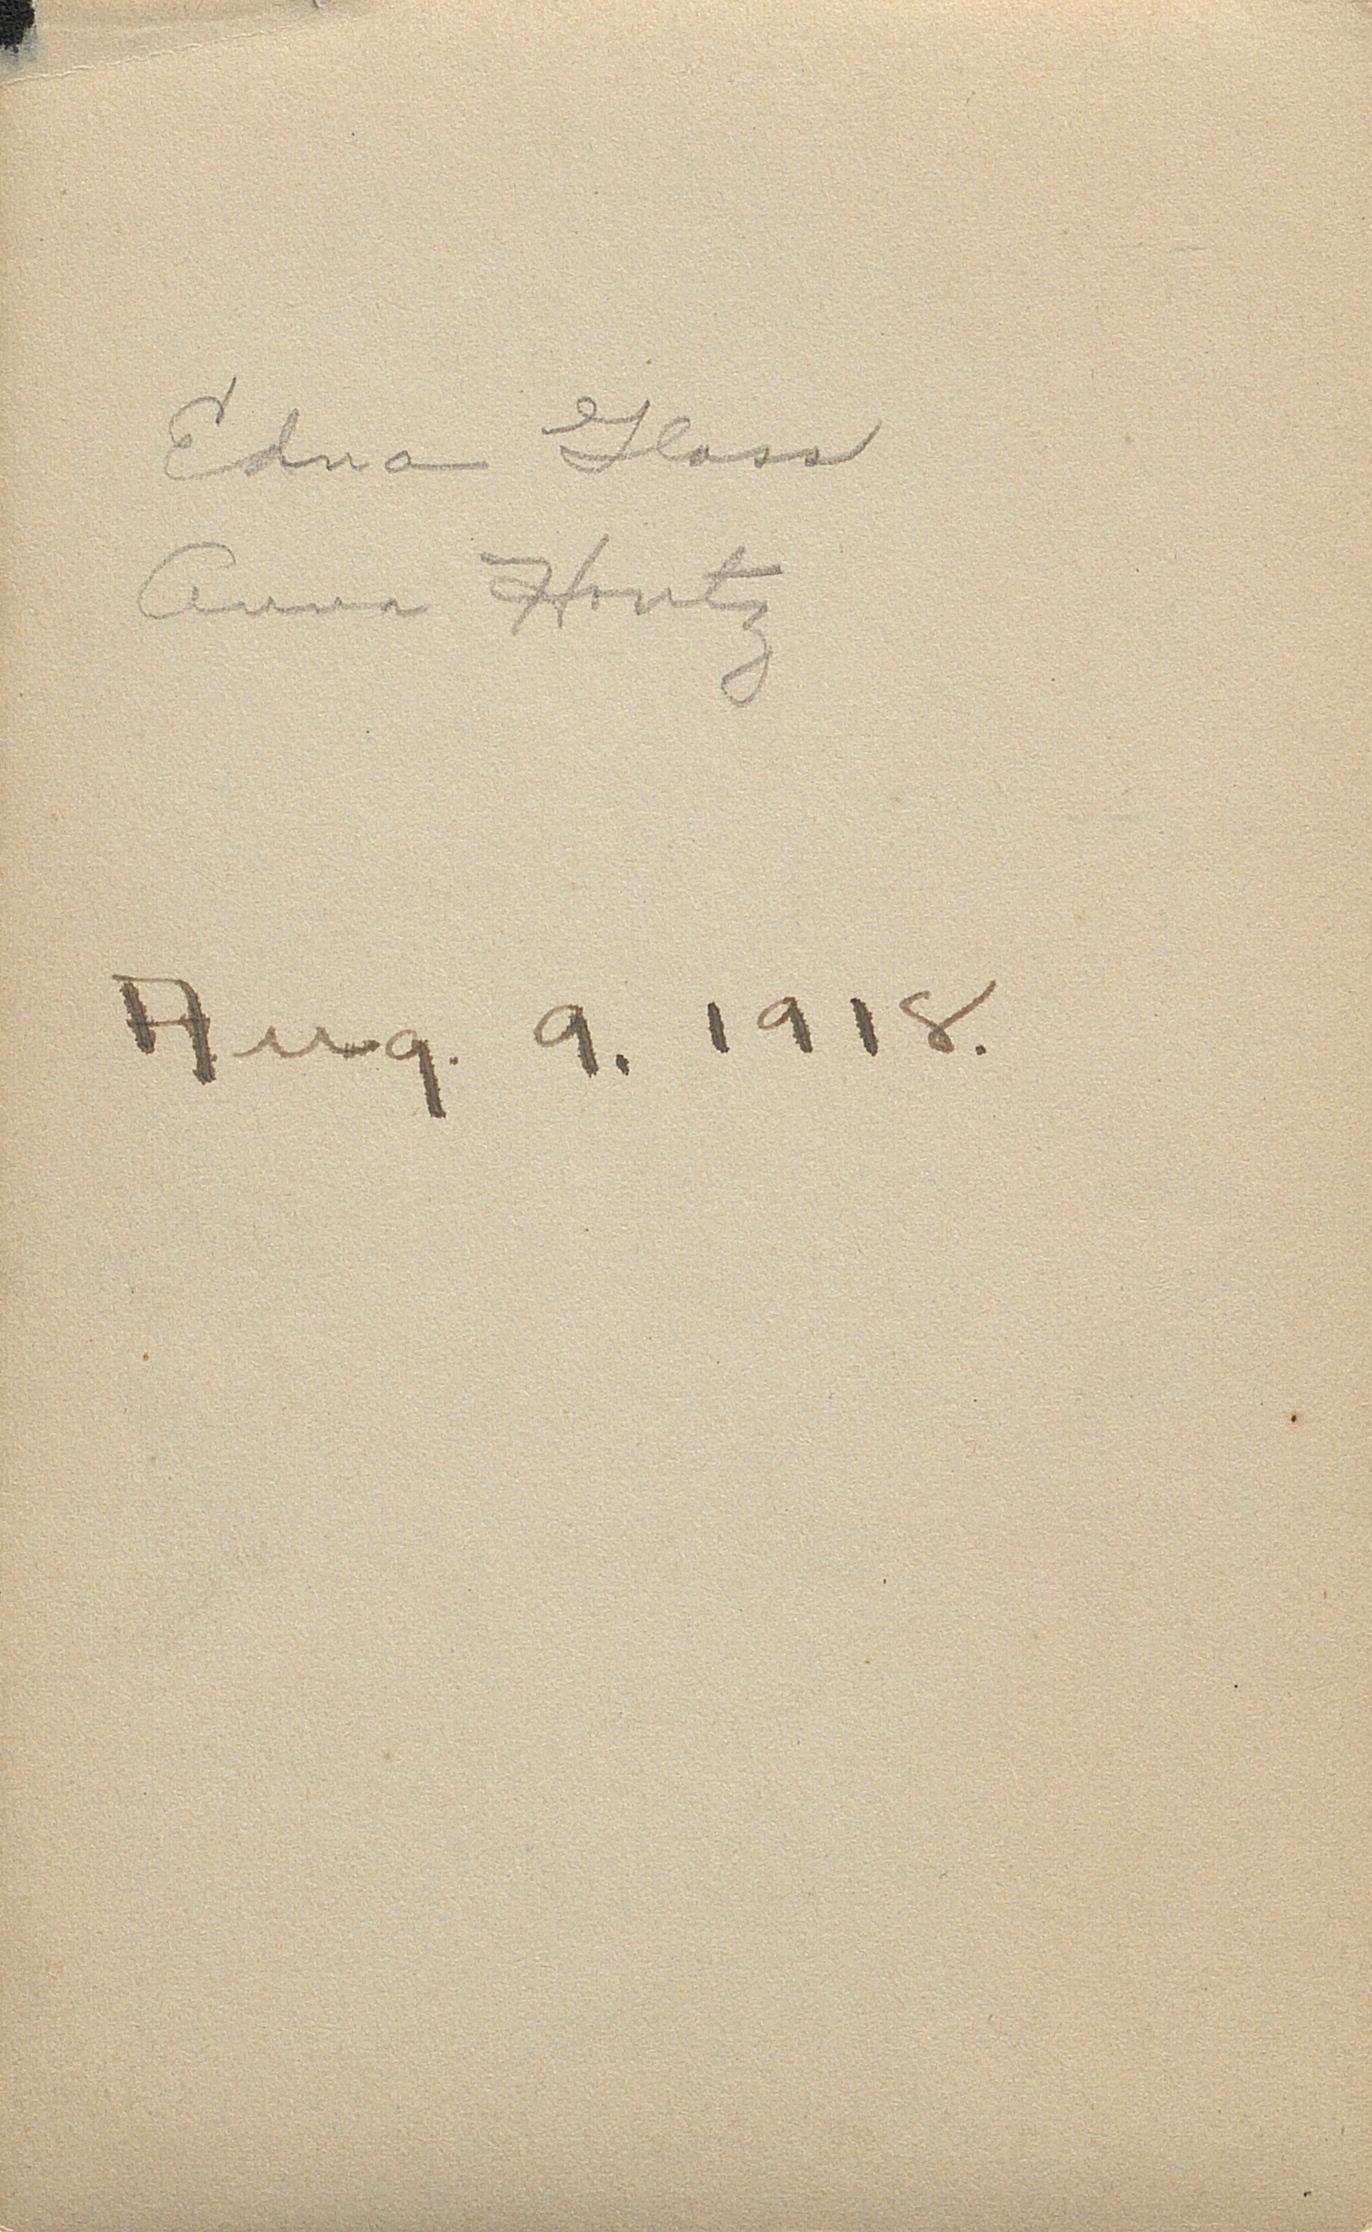 Edna Glass
Anna Houtz
Aug. 9. 1918.